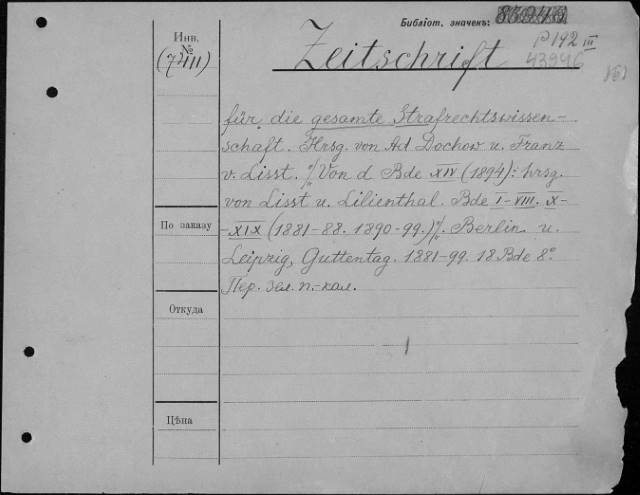 Библіот. значекъ:
Инв. №
(7
III)
Zeitschrift
P192 III
43946
für die gesamte Strafrechtswissen-
schaft. Hrsg. von Ad Dochow u. Franz
v. Lisst. % Von d Bde XIV (1894): hrsg.
von Lisst u. Lilienthal. Bde I-VIII. X-
-XIX (1881-88. 1890-99.) %. Berlin u.
По заказу
Leipzig, Guttentag. 1881-99. 18 Bde 8°
Пер. зел. п.-кал.
Откуда
Цѣна